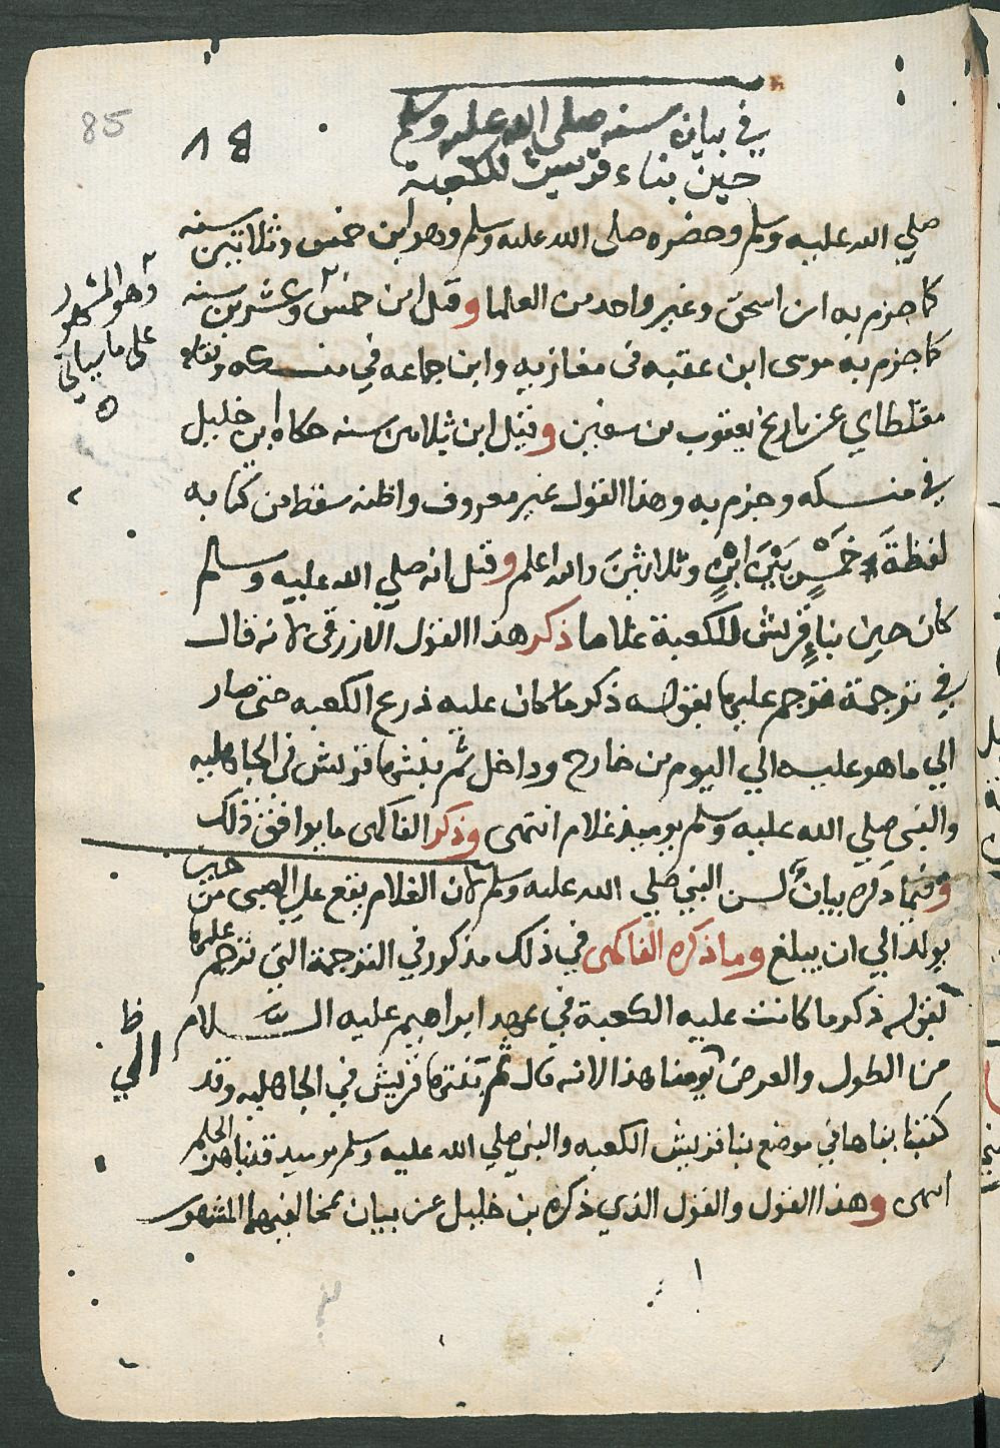 85
في بيان سنه صلى الله عليه وسلم
حين بناء قريش للكعبة
صلي الله عليه وسلم وحضره صلى الله عليه وسلم وهو ابن خمس وثلاثين سنه
كما جزم به ابن اسحق وغير واحد من العلما وقيل ابن خمس وعشرين سنه
كما جزم به موسى ابن عقبه في مغازيه وابن جماعه في منسكه ونقله
مغلطاي عن تاريخ يعقوب بن سفين وقيل ابن ثلاثين سنه حكاه ابن خليل
في منسكه وجزم به وهذا القول غير معروف واظنه سقط من كتابه
لفظة خمس بين ابن وثلاثين والله اعلم وقيل انه صلي الله عليه وسلم
كان حين بناء قريش للكعبة غلاما ذكر هذا القول الازرقي لانه قال
في ترجمة ترجم عليها بقوله ذكر ما كان عليه ذرع الكعبه حتى صار
الي ما هو عليه الي اليوم من خارج وداخل ثم بنتها قريش في الجاهليه
والنبي صلي الله عليه وسلم يوميذ غلام انتهى وذكر الفاكهى ما يوافق ذلك
وفيما ذكره بيان لسن النبي صلي الله عليه وسلم لان الغلام يقع علي الصبى من حين
يولد الي ان يبلغ وما ذكره الفاكهى في ذلك مذكور في الترجمة التي ترجم عليها
بقوله ذكر ما كانت عليه الكعبة في عهد ابراهيم عليه السلام
من الطول والعرض يومنا هذا لانه قال ثم بنتها قريش في الجاهليه وقد
كتبنا بناها في موضع بنا قريش الكعبه والنبي صلي الله عليه وسلم يوميذ قد ناهز الحلم
انتهى وهذا القول والقول الذي ذكره بن خليل عن بيان مخالفتهما المشهور
وهو المشهور
على ما سياتي
ظ
الي